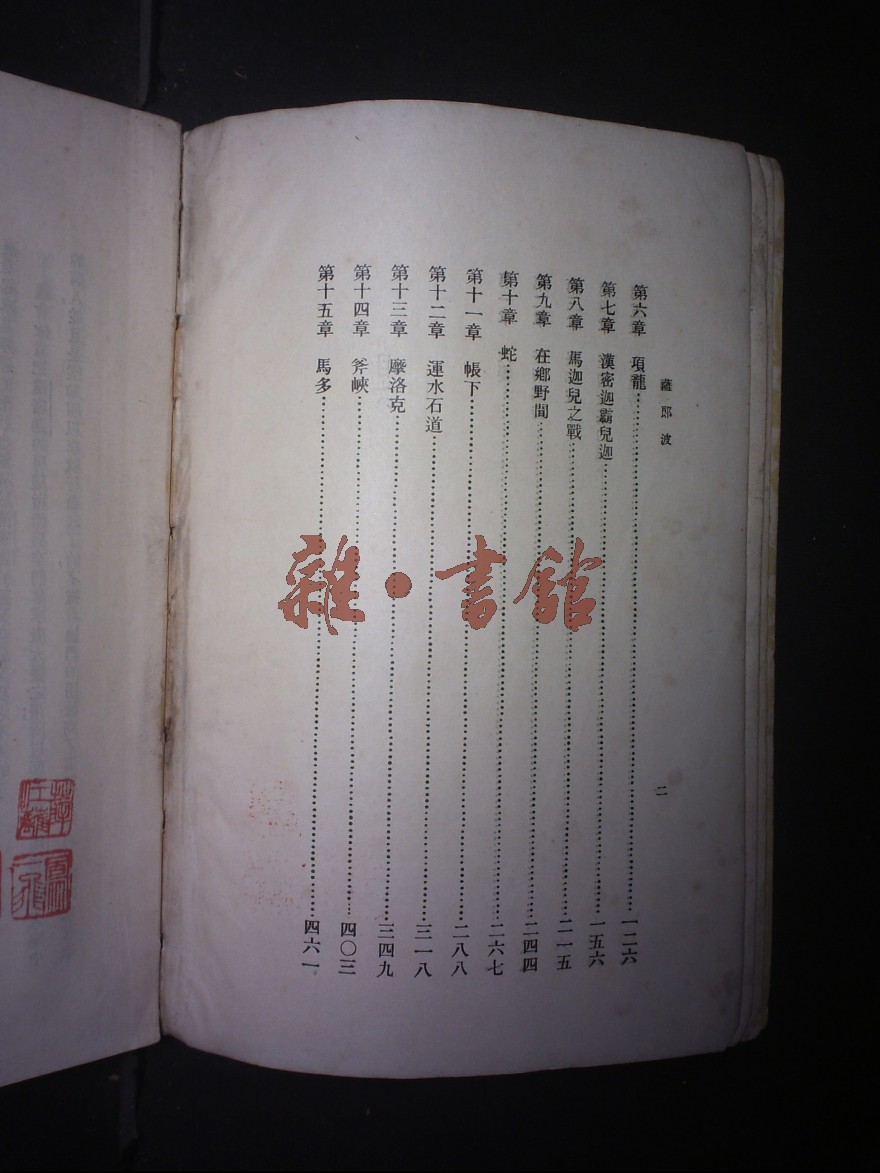 薩郎波
二
第六章 項龍……一二六
第七章 漢密迦霸兒迦……一五六
第八章 馬迦兒之戰……二一五
第九章 在鄉野間……二四四
第十章 蛇……二六七
第十一章 帳下……二八八
第十二章 運水石道……三一八
第十三章 摩洛克……三四九
第十四章 斧峽……四〇三
第十五章 馬多……四六一
雜·書館